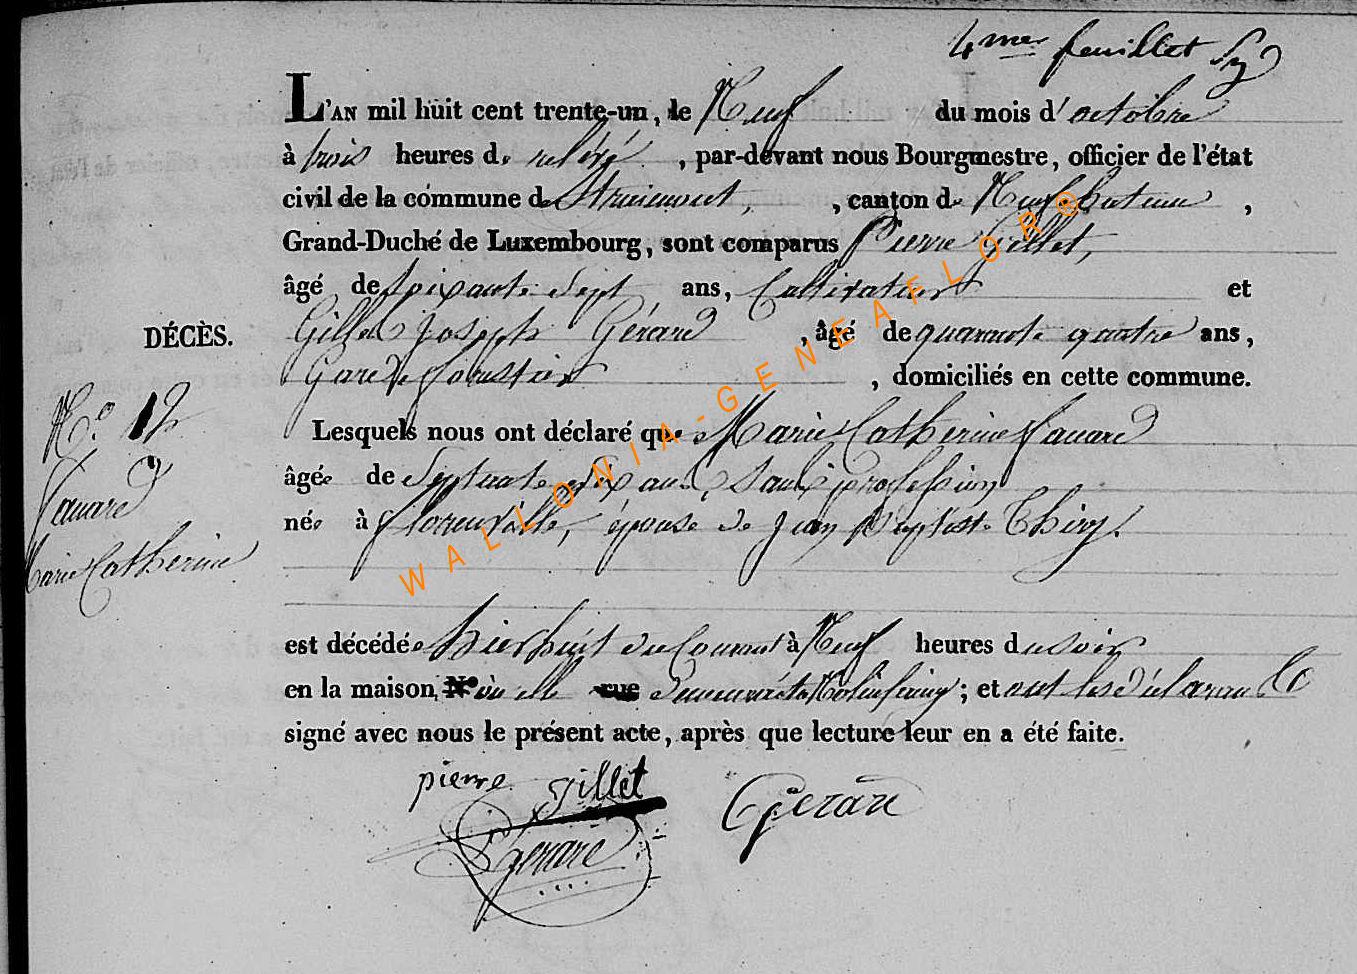 4me feuillet
L'AN mil huit cent trente-un, le Neuf du mois d'octobre
à trois heures de relevé, par-devant nous Bourgmestre, officier de l'état
civil de la commune de Straimont, canton de Neufchateau,
Grand-Duché de Luxembourg, sont comparus Pierre Gillet,
âgé de soixante sept ans, Cultivateur et
Gilles Joseph Gérard, âgé de quarante quatre ans,
DÉCÈS.
Garde forestier, domiciliés en cette commune.
N.º 12
Lesquels nous ont déclaré que Marie Catherine
âgée de Septante dix ans, Sans profession
née à florenville, épouse de Jean Baptiste Thiry.
Marie Catherine
est décédée hier huit du Courant à Neuf heures du soir
en la maison, N° où elle rue ; et ont les déclarans
signé avec nous le présent acte, après que lecture leur en a été faite.
pierre gillet
Gerard
Gerard
WALLONIA-GENEAFLOR®